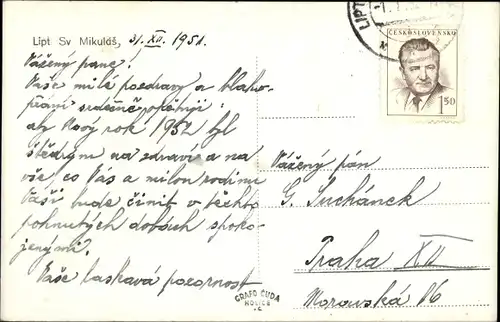 Lipt. Sv. Mikuláš, 31. XII. 1951.
Vážený pane!
Vaše milé pozdravy a blaho-
přání srdečně opětuji:
aby Nový rok 1952 byl
štědrým na zdraví a na
vše, co Vás a milou rodinu
Vaší bude činit v těchto
pohnutých dobách spoko-
jenými.
Vaše laskavá pozornost
LIPT
ČESKOSLOVENSKO
1.50
Vážený pán
G. Suchánek
Praha XII
Moravská 16
GRAFO ČUDA
HOLICE